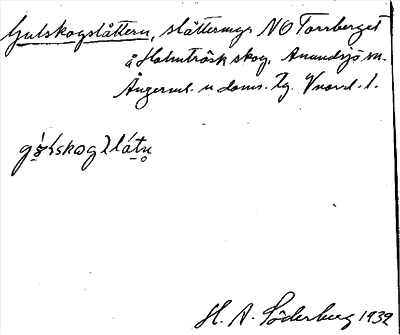 Gulskogslåttern, slåttermyr NO Torrberget
å Holmträsk skog, Anundsjö sn.
Ångerml. n. doms. Tg. V nord. 1.
H. A. Söderberg 1932